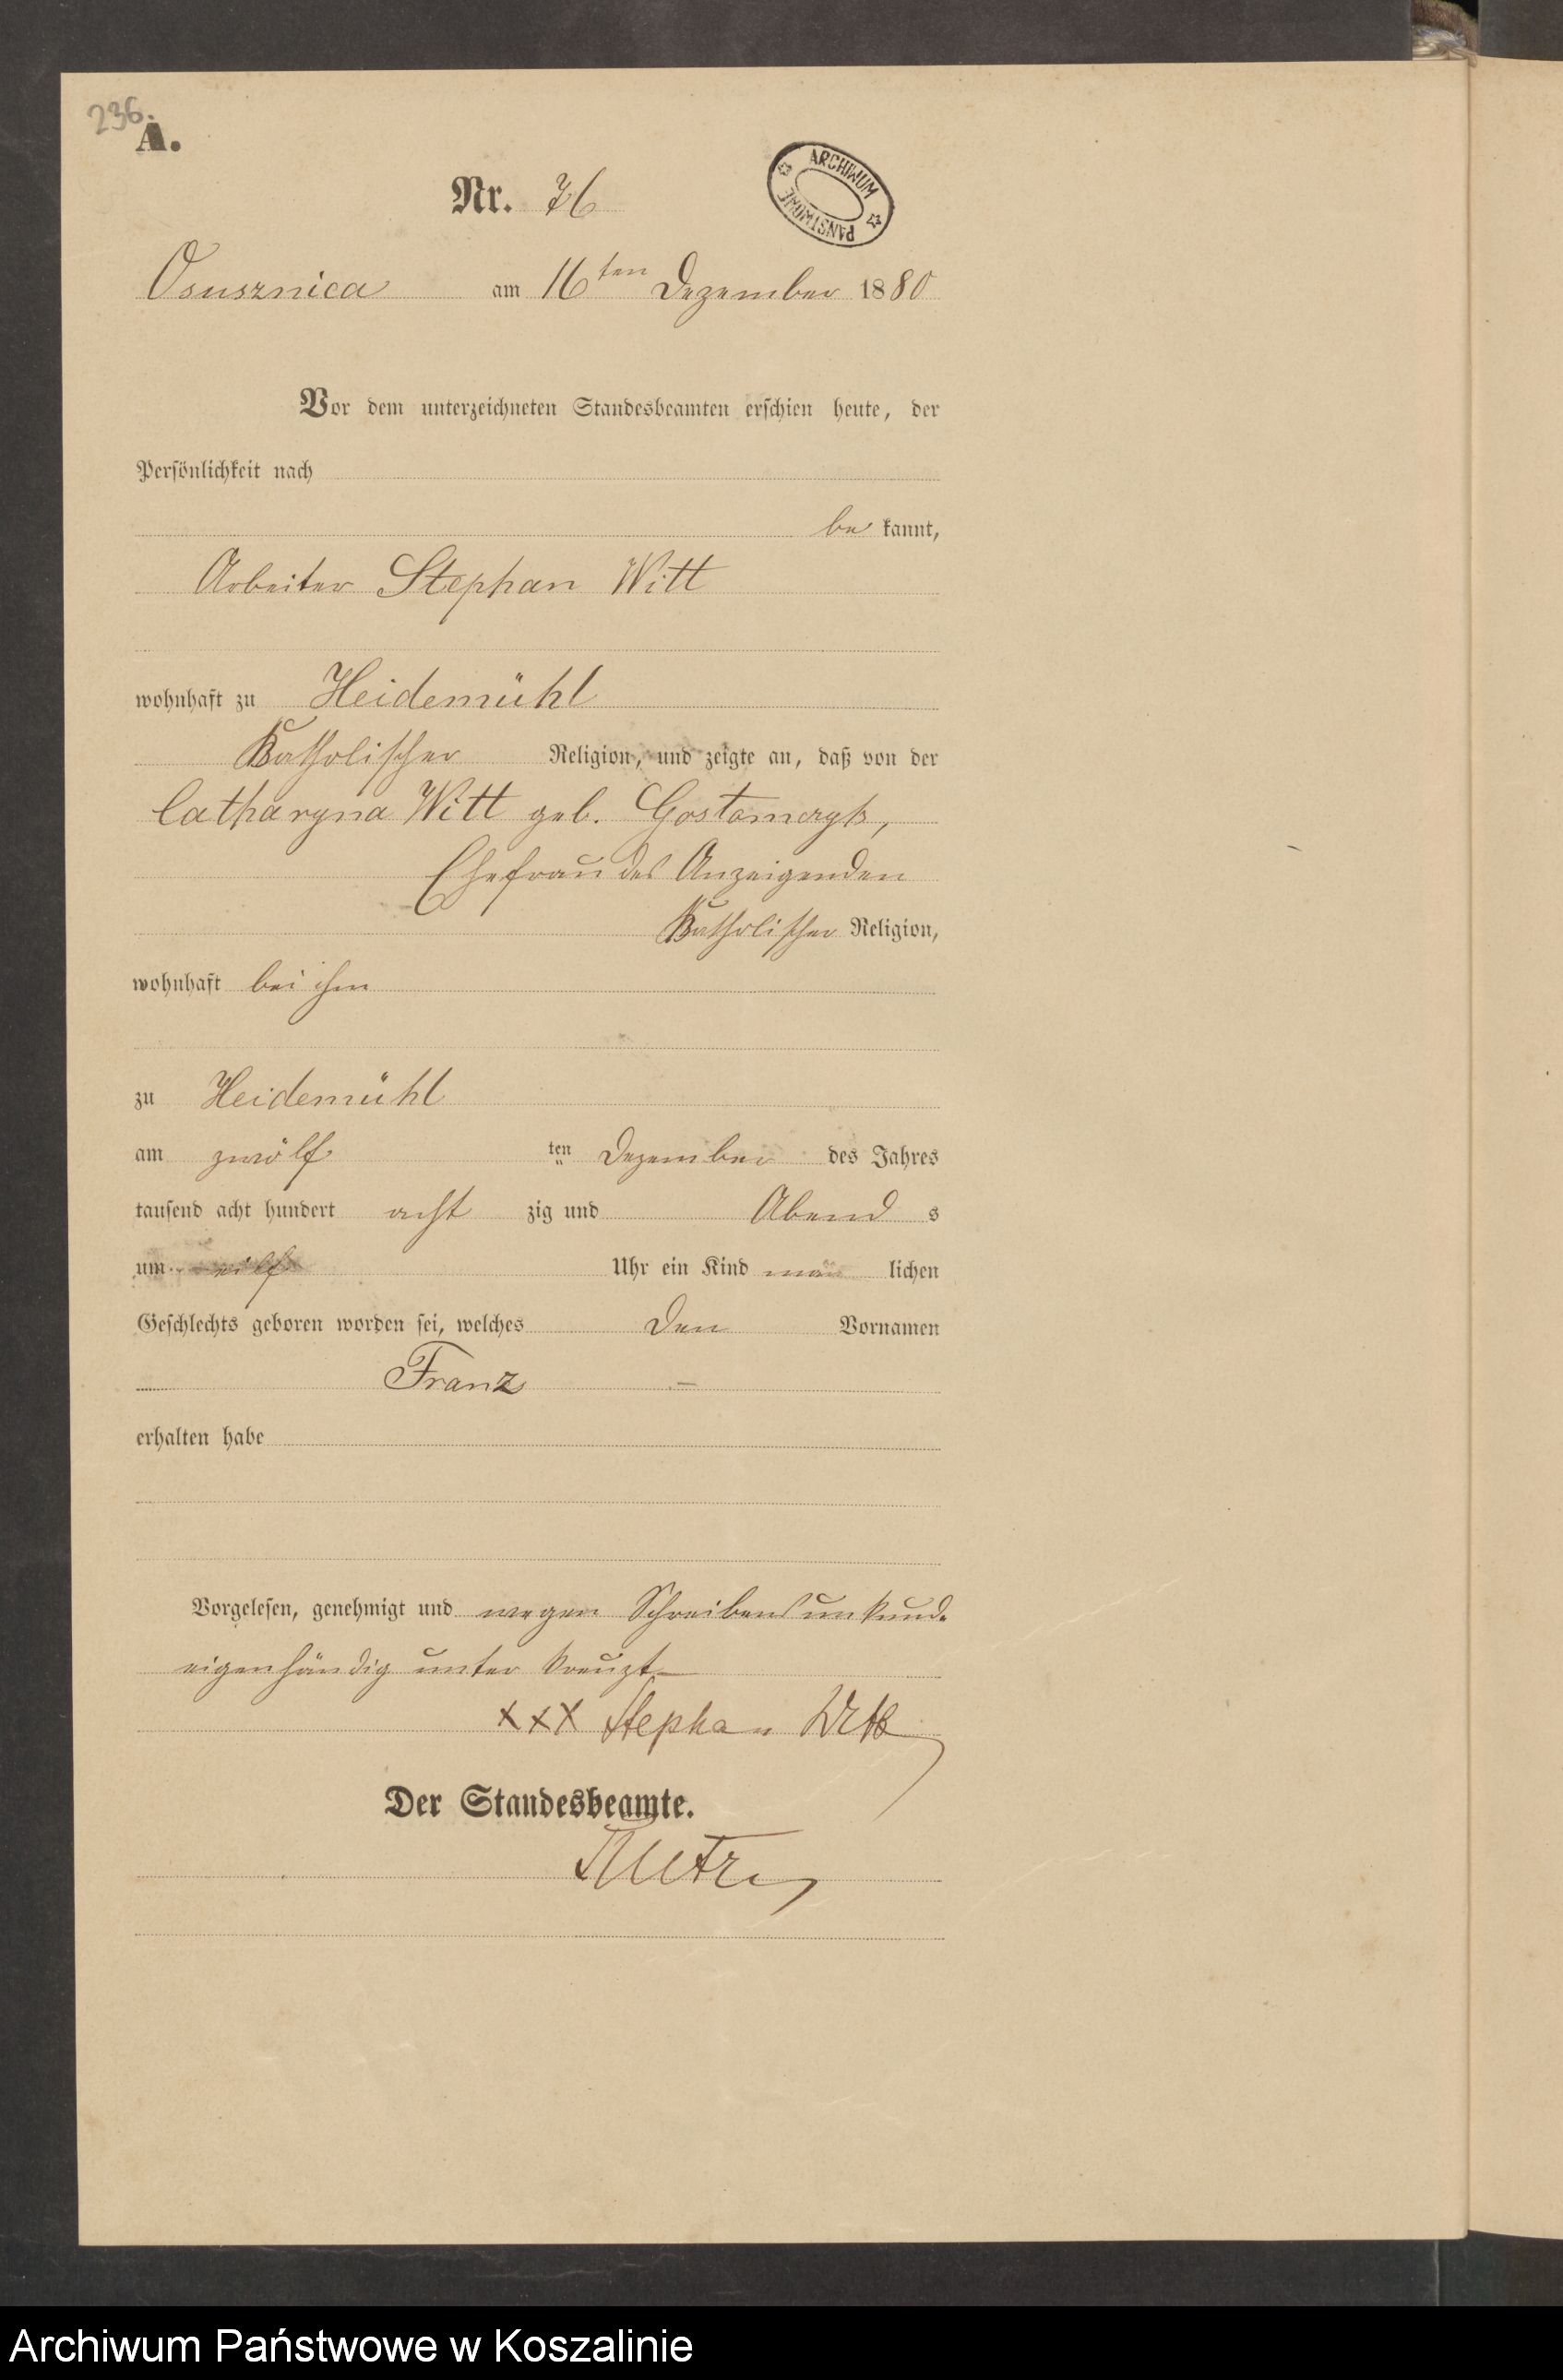 236.
A.
Nr. 76
ARCHIWUM PAŃSTWOWE
Osusznica am 16ten Dezember 1880
Vor dem unterzeichneten Standesbeamten erschien heute, der
Persönlichkeit nach
be kannt,
Arbeiter Stephan Witt
wohnhaft zu Heidemühl
Katholischer Religion, und zeigte an, daß von der
Catharyna Witt geb.
Ehefrau des Anzeigenden
Katholischer Religion,
wohnhaft bei ihm
zu Heidemühl
am zwölf ten Dezember des Jahres
tausend acht hundert acht zig und Abend s
um eilf Uhr ein Kind män lichen
Geschlechts geboren worden sei, welches den Vornamen
Franz –
erhalten habe
Vorgelesen, genehmigt und wegen Schreibensunkund.
eigenhändig unter kreuzt
XXX Stephan Witt
Der Standesbeamte.
Archiwum Państwowe w Koszalinie